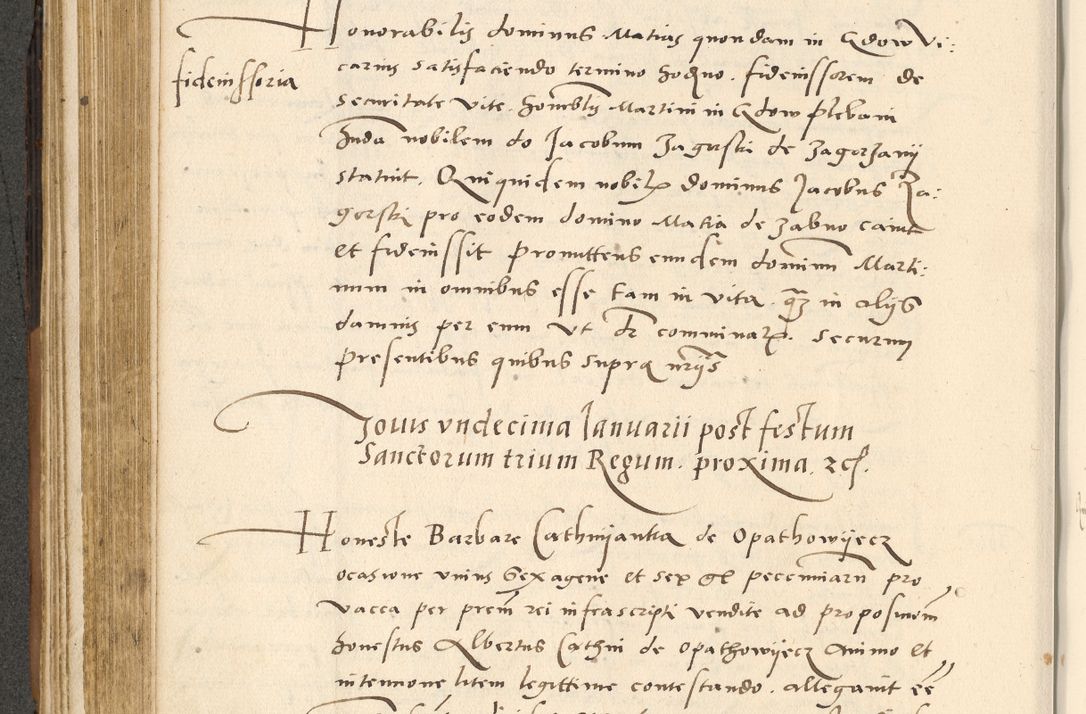 Honorabilis dominus Matias quondam in Gdow Vi:
fideiussoria
carius satisfaciendo termino hodierno. fideiussorem de
securitate vite. honorabilis Martini in Gdow plebani
nobilem do Jacobum Zagorski de Zagorzany
statuit. Qui quidem nobilis dominus Jacobus Za:
gorski pro eodem domino Matia de Zabno cavit
et fideiussit promittens eundem dominum Marti:
num in omnibus esse tam in vita. quam in aliis
damnis per eum ut dicitur comminatis. securum
presentibus quibus supra
Jovis undecima Januarii post festum
Sanctorum trium Regum. proxima. etc.
Honeste Barbare Cathnyanka de Opathowyecz
ocasione unius sexagene et sex gl pecuniarum pro
vacca per premissum rei infrascripti vendite ad propositionem
honestus Albertus Cathni de Opathowyecz animo et
intentione litem legittime contestando. allegavit esse